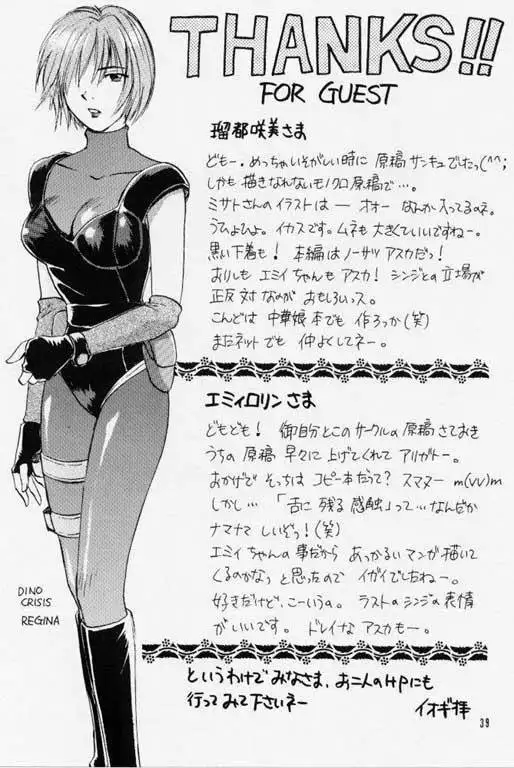 THANKS!!
FOR GUEST
瑠都咲美さま
どもー。めっちゃいそがしい時に 原稿サンキュでたっ(^^;
しかも描きなれないモノクロ原稿で…。
ミサトさんのイラストは ― オォー なんか入ってるのネ。
うひょひょ。イカスです。ムネも大きくていいですねー。
黒い下着も! 本編はノーサツアスカだっ!
おりしもエミィちゃんもアスカ! シンジとの立場が
正反対なのが おもしろいっス。
こんどは 中華娘本でも 作ろっか(笑)
またネットでも 仲よくしてネー。
エミィロリンさま
どもども! 御自分とこのサークルの原稿さておき
うちの原稿 早々に上げてくれてアリガトー。
おかげで そっちは コピー本だって? スマヌー m(vv)m
しかし… 「舌に残る感触」って…なんだか
ナマナマしいぞっ!(笑)
エミィちゃんの事だから あっかるいマンガ描いて
くるのかなっ と思ったので イガイでしたねー。
好きだけど、こーいうの。 ラストのシンジの表情
がいいです。 ドレイなアスカもー。
DINO
CRISIS
REGINA
というわけで みなさま、お二人のHPにも
行ってみて下さいネー
イオギ拝
39